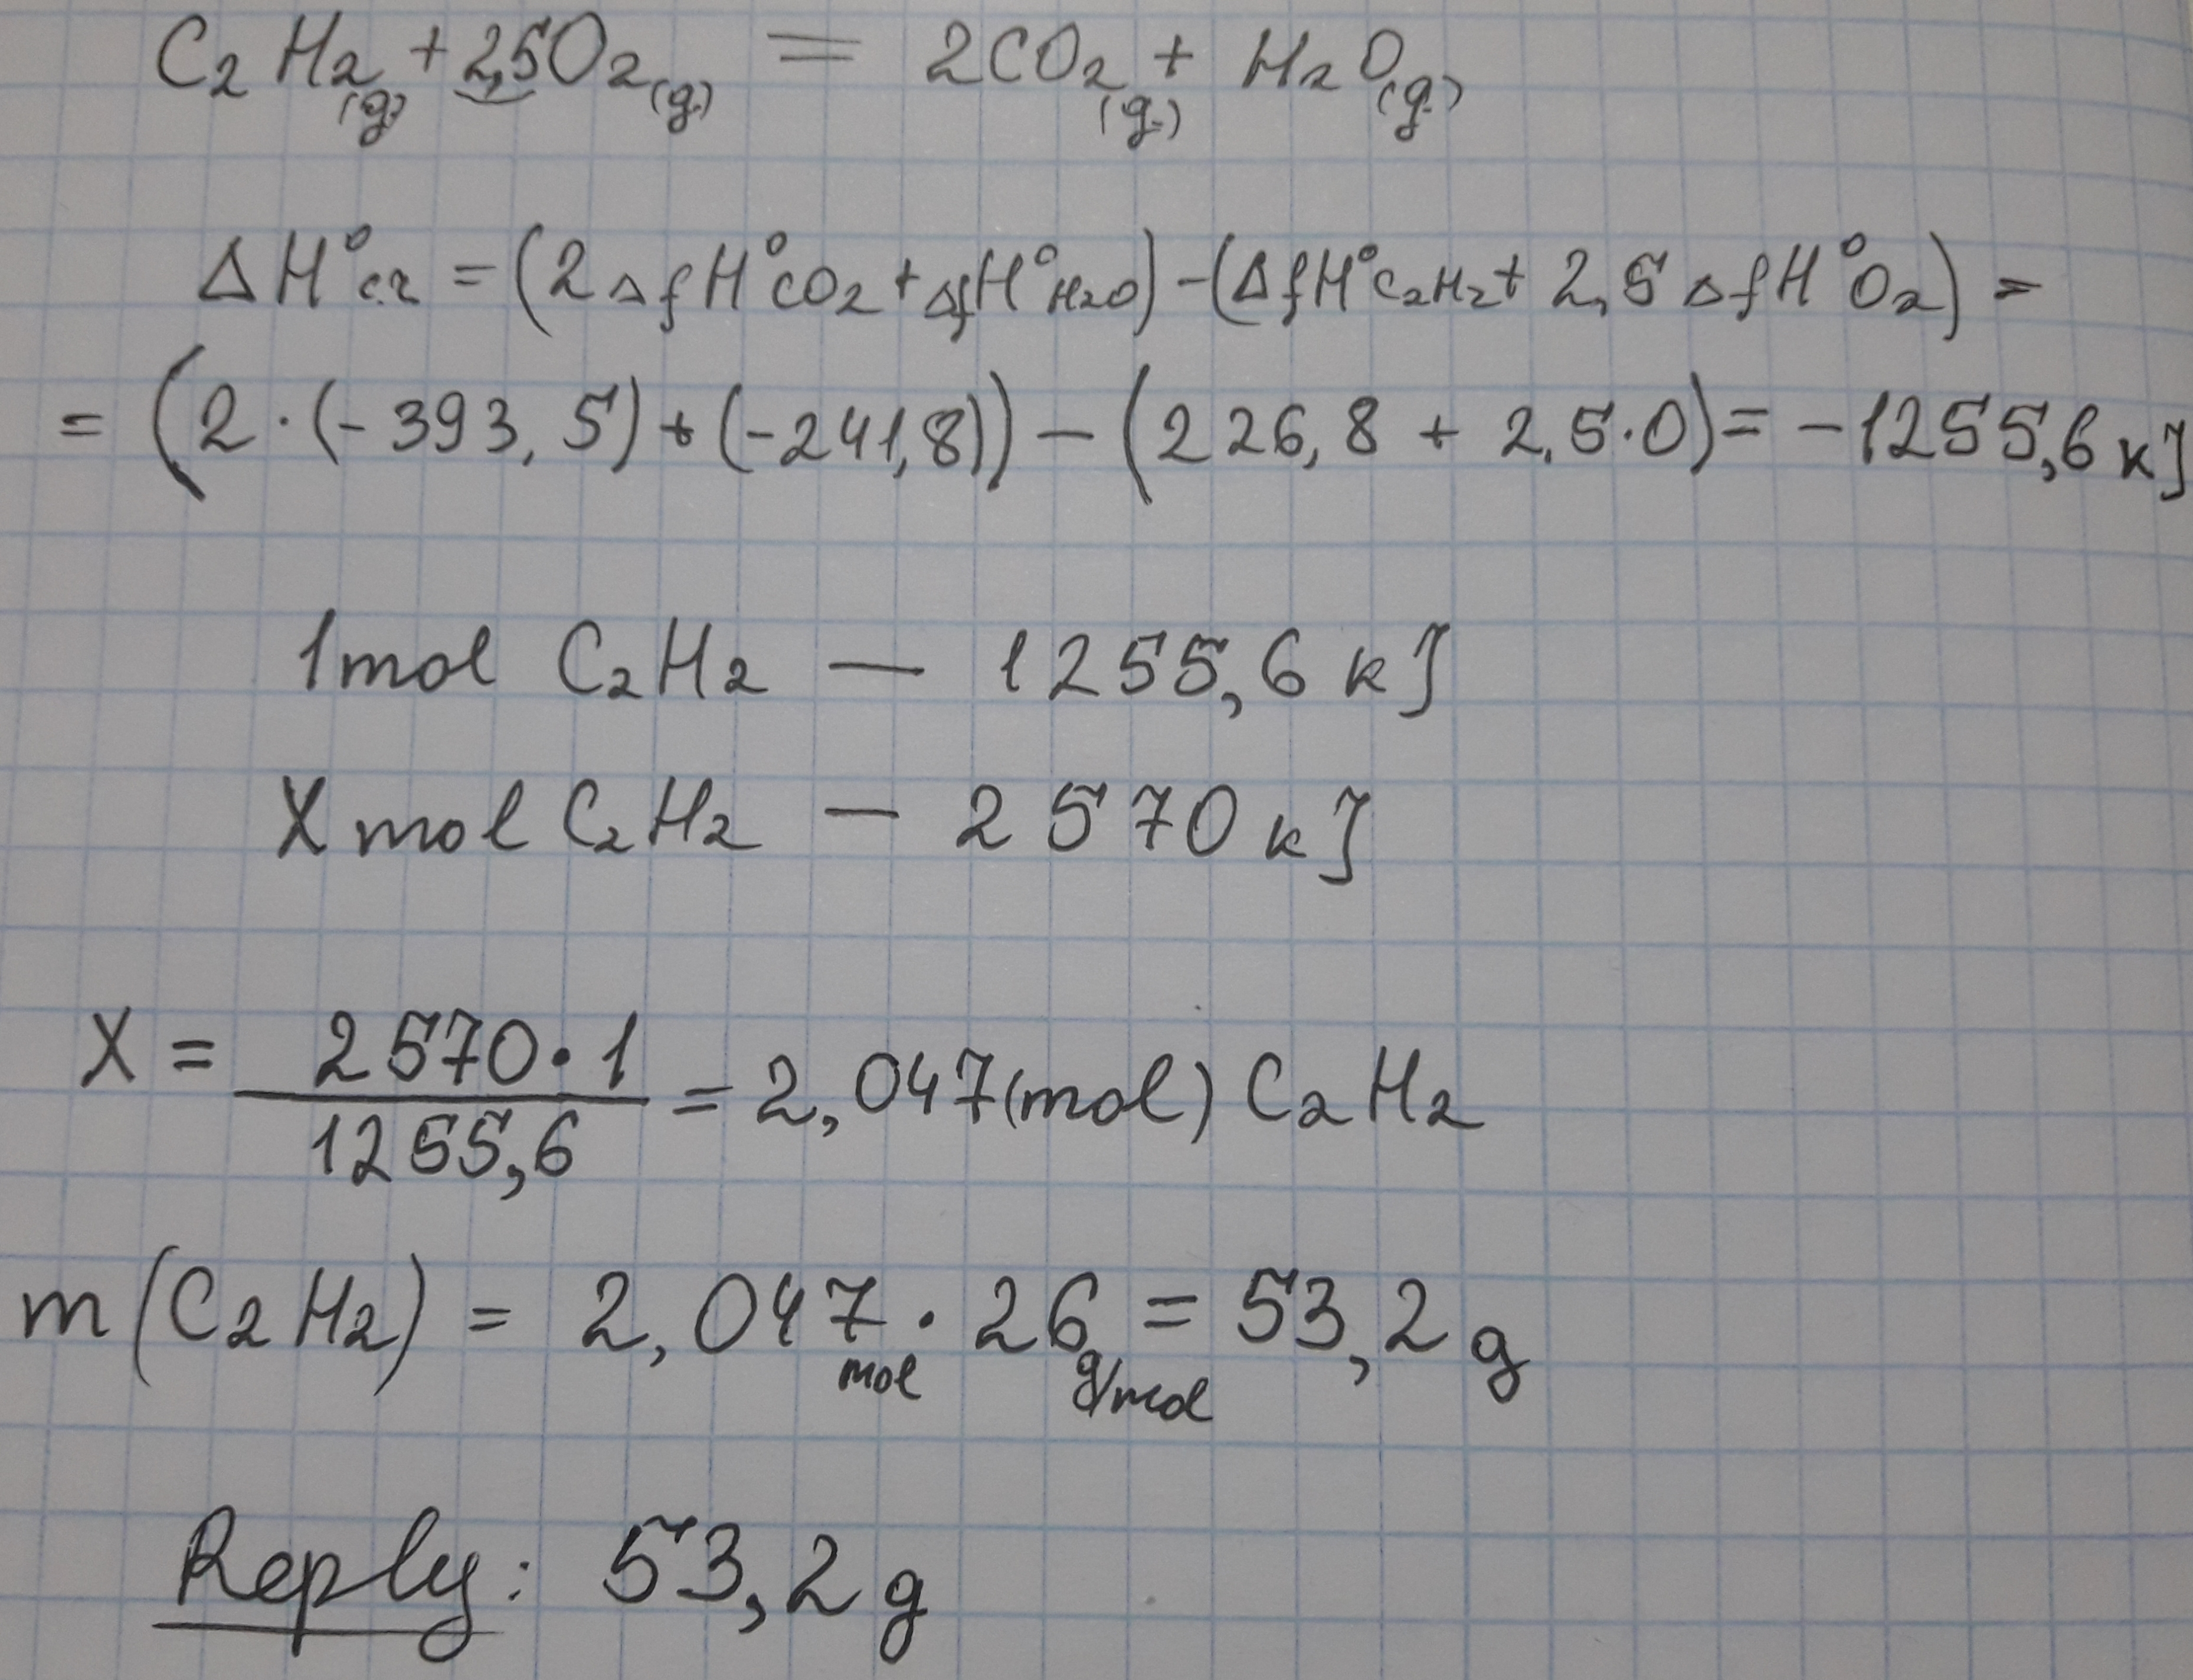 C₂H₂(g) + 2,5O₂(g) = 2CO₂(g) + H₂O(g)
ΔH°c.r = (2ΔfH°CO₂ + ΔfH°H₂O) - (ΔfH°C₂H₂ + 2,5ΔfH°O₂) =
= (2·(-393,5) + (-241,8)) - (226,8 + 2,5·0) = -1255,6 kJ
1 mol C₂H₂ — 1255,6 kJ
X mol C₂H₂ — 2570 kJ
X = 2570·1 / 1255,6 = 2,047 (mol) C₂H₂
m(C₂H₂) = 2,047 mol · 26 g/mol = 53,2 g
Reply: 53,2 g